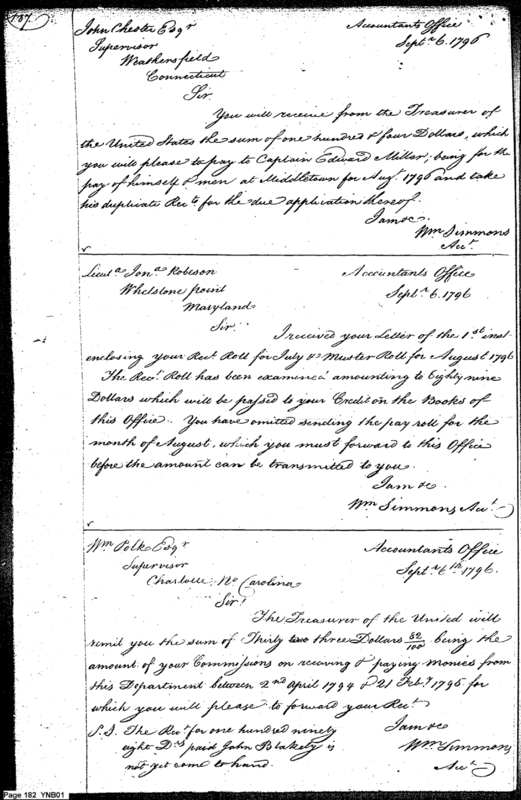 187
John Chester Esqr
Accountants Office
Supervisor
Septr 6. 1796
Weathersfield
Connecticut
Sir
You will receive from the Treasurer of
the United States the sum of one hundred & four Dollars, which
you will please to pay to Captain Edward Miller; being for the
pay of himself & men at Middletown for Augt 1796 and take
his duplicate Rects for the due application thereof.
I am &c.
Wm Simmons
Acct
Lieut Jona Robeson
Accountants Office
Whelstone point
Septr 6. 1796
Maryland
Sir
I received your Letter of the 1st inst
enclosing your Rect Roll for July & Muster Roll for August 1796
The Rect Roll has been examined amounting to Eighty nine
Dollars which will be passed to your Credit on the Books of
this Office. You have omitted sending the pay roll for the
month of August, which you must forward to this Office
before the amount can be transmitted to you.
I am &c
Wm Simmons Acct
Wm Polk Esqr
Accountants Office
Supervisor
Septr 6th 1796.
Charlotte, No Carolina
Sir
The Treasurer of the United will
remit you the sum of Thirty two three Dollars 52/100 being the
amount of your Commissions on receiving & paying monies from
this Department between 2nd April 1794 & 21 Feby 1795 for
which you will please to forward your Rect
P.S. The Rect for one hundred ninety
I am &c
eight Drs paid John Blakely is
Wm Simmons
not yet come to hand.
Acct
Page 182 YNB01